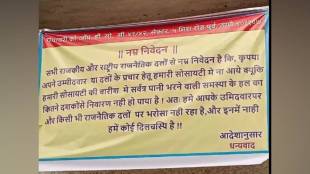 ॥ नम्र निवेदन ॥
सभी राजकीय और राष्ट्रीय राजनैतिक दलों से नम्र निवेदन है कि, कृपया
अपने उम्मीदवार या दलों के प्रचार हेतू हमारी सोसायटी मे ना आये क्यूंकि
हमारी सोसायटी की बारीश मे सर्वत्र पानी भरने वाली समस्या के हल का
कितने दशकोंसे निवारण नही हो पाया है ! अतः हमे आपके उमिदवारपर
और किसी भी राजनैतिक दलों पर भरोसा नही रहा है,और इनमें नाही
हमे कोई दिलचस्पि है !!
आदेशानुसार
धन्यवाद